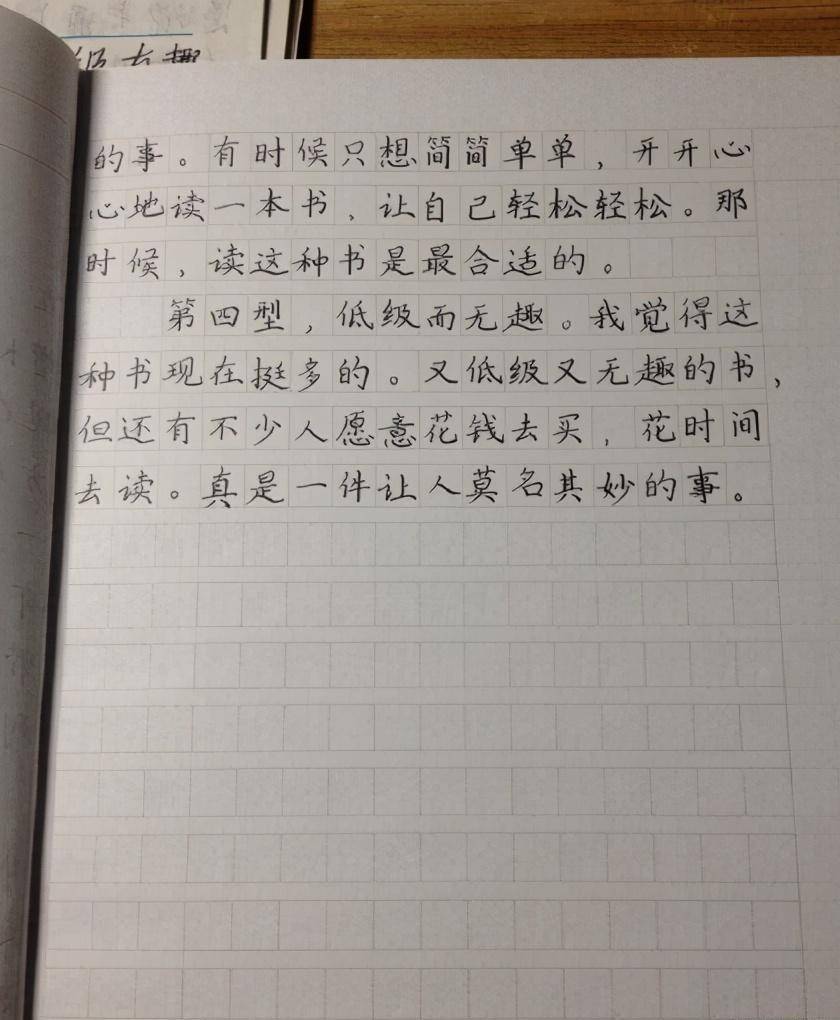 级有趣
的事。有时候只想简简单单，开开心
心地读一本书，让自己轻松轻松。那
时候，读这种书是最合适的。
第四型，低级而无趣。我觉得这
种书现在挺多的。又低级又无趣的书，
但还有不少人愿意花钱去买，花时间
去读。真是一件让人莫名其妙的事。